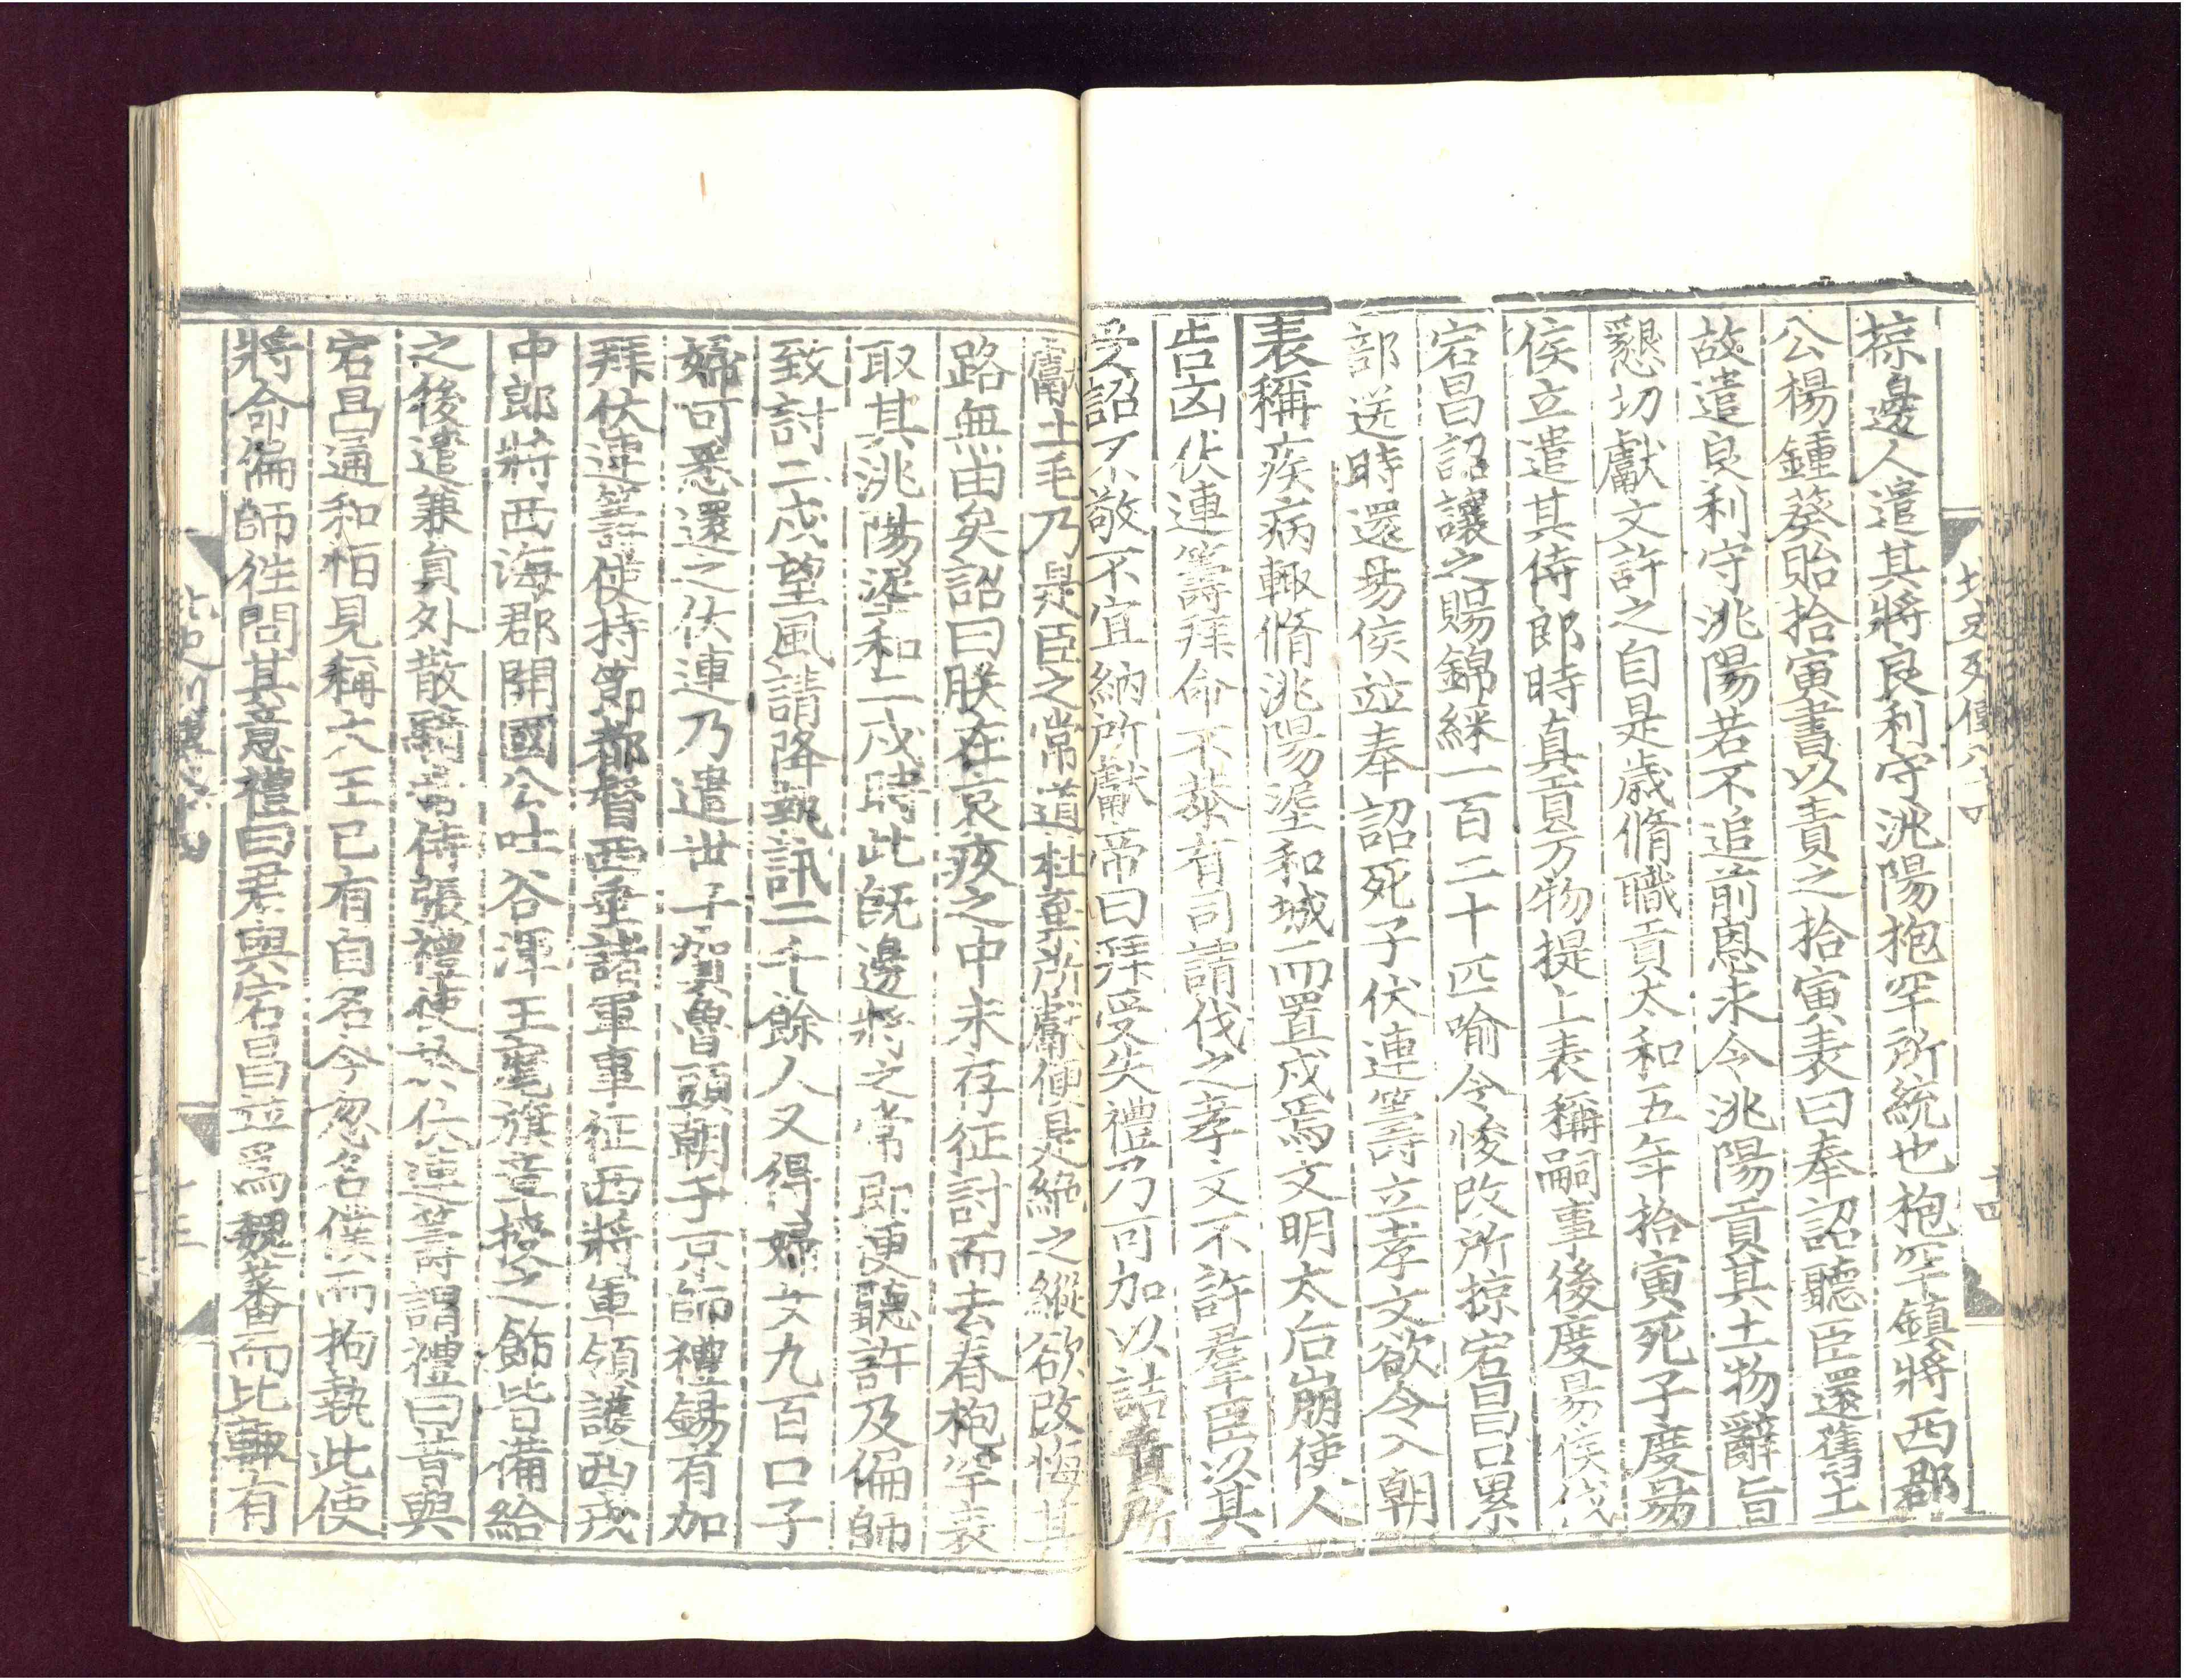 掠邊人遣其將良利守洮陽抱罕所統也抱罕鎮將西郡
公楊鍾葵貽拾寅書以責之拾寅表曰奉詔聽臣還舊土
故遣良利守洮陽若不追前恩求令洮陽貢其土物辭旨
懇切獻文許之自是歳脩職貢太和五年拾寅死子度易
侯立遣其侍郎時真貢方物提上表稱嗣事後度易侯伐
宕昌詔讓之賜錦綵一百二十匹喻令悛改所掠宕昌口累
部送時還易侯竝奉詔死子伏連籌立孝文欲令入朝
表稱疾病輙脩洮陽埿和城而置戍焉文明太后崩使人
告凶伏連籌拜命不恭有司請伐之孝文不許羣臣以其
受詔不敬不宜納所獻帝曰拜受失禮乃可加以詰責所
獻土毛乃是臣之常道杜棄所獻便是絶之縱欲改悔其
路無由矣詔曰朕在哀疚之中未存征討而去春枹罕表
取其洮陽埿和二戍時此旣邊將之常即便聽許及偏師
致討二戍望風請降執訊二千餘人又得婦女九百口子
婦可悉還之伏連乃遣世子賀魯頭朝于京師禮錫有加
拜伏連籌使持節都督西垂諸軍事征西將軍領護西戎
中郎將西海郡開國公吐谷渾王麾旗章授之飾皆備給
之後遣兼員外散騎常侍張禮使於伏連籌謂禮曰昔與
宕昌通和栢見稱大王已有自名今忽名僕而拘執此使
將命偏師徃問其意禮曰君與宕昌竝爲魏蕃而比輙有
北史列傳八十四
十四
北史列傳八十四
十三